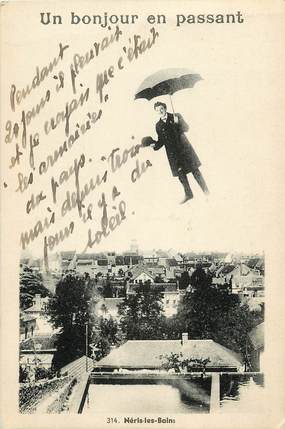 Un bonjour en passant
Pendant
20 jours il pleuvait
et je croyais que c'était
"les armoiries"
du pays.
mais depuis trois
jours il y a du
soleil.
314. Néris-les-Bains